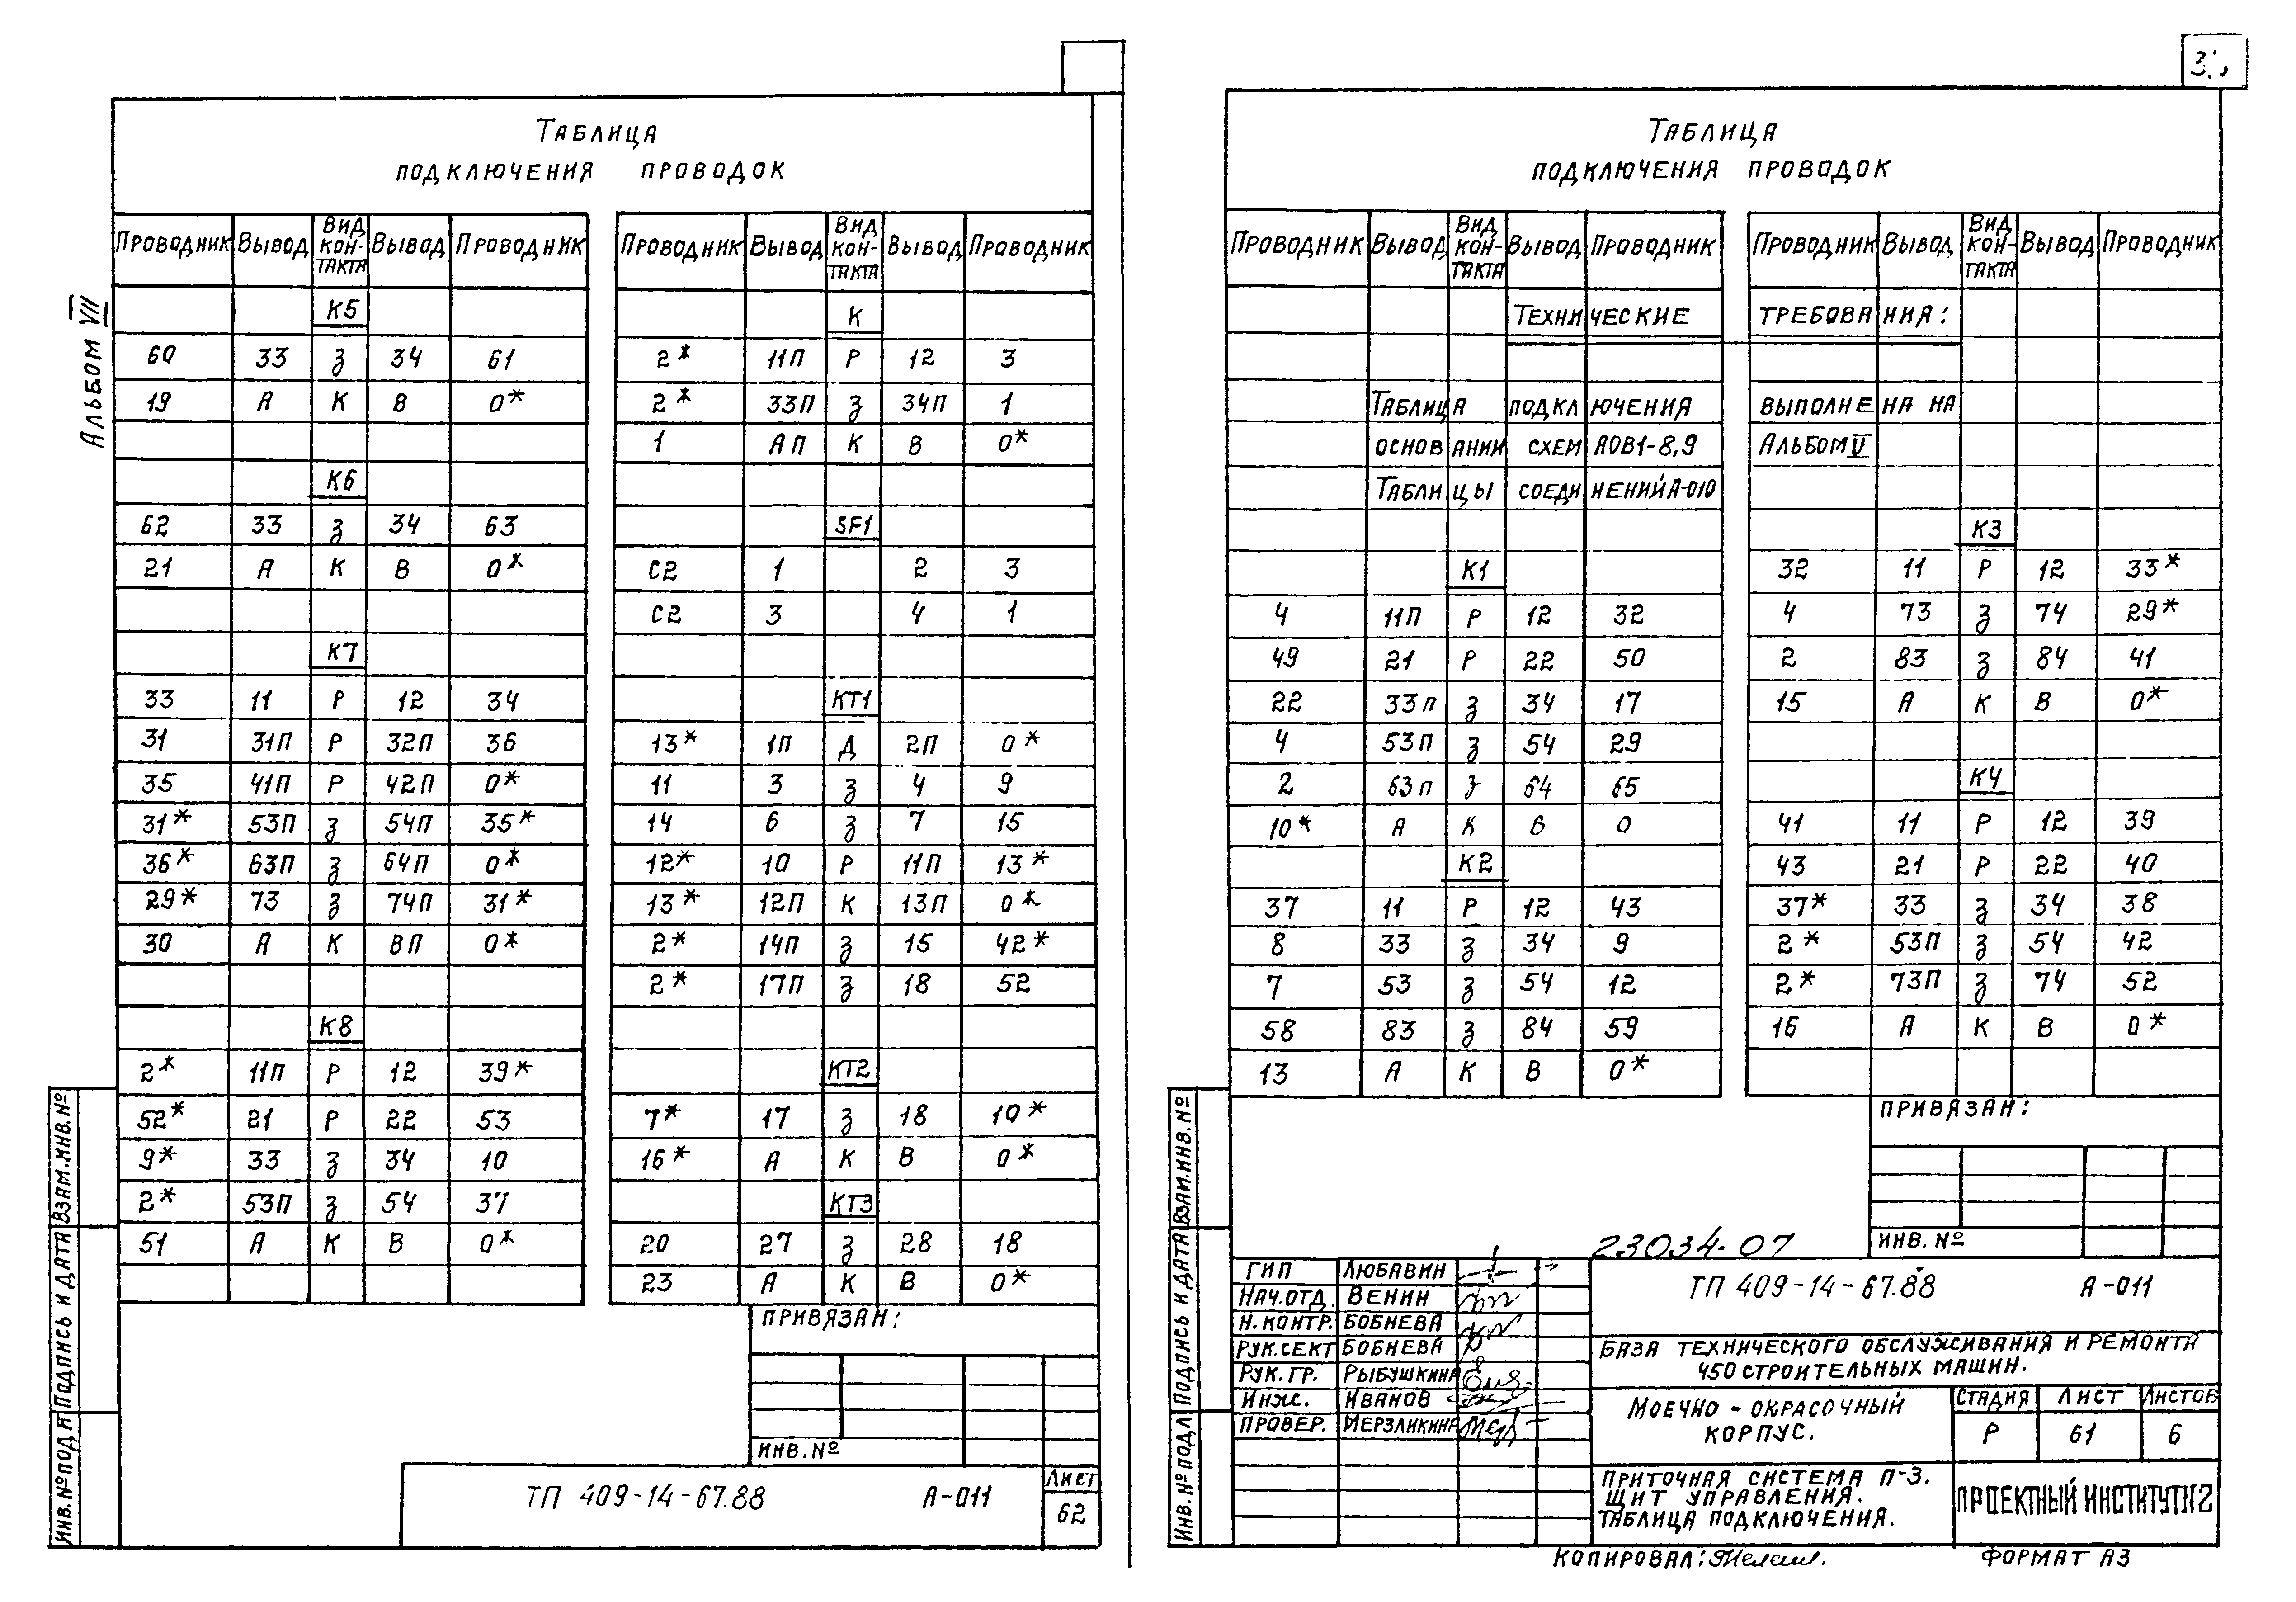 Альбом VII
Таблица
подключения проводок
Проводник Вывод Вид контакта Вывод Проводник
К5
60 33 З 34 61
19 А К В 0*
К6
62 33 З 34 63
21 А К В 0*
К7
33 11 Р 12 34
31 31П Р 32П 36
35 41П Р 42П 0*
31* 53П З 54П 35*
36* 63П З 64П 0*
29* 73 З 74П 31*
30 А К ВП 0*
К8
2* 11П Р 12 39*
52* 21 Р 22 53
9* 33 З 34 10
2* 53П З 54 37
51 А К В 0*
Проводник Вывод Вид контакта Вывод Проводник
К
2* 11П Р 12 3
2* 33П З 34П 1
1 АП К В 0*
SF1
С2 1 2 3
С2 3 4 1
КТ1
13* 1П Д 2П 0*
11 3 З 4 9
14 6 З 7 15
12* 10 Р 11П 13*
13* 12П К 13П 0*
2* 14П З 15 42*
2* 17П З 18 52
КТ2
7* 17 З 18 10*
16* А К В 0*
КТ3
20 27 З 28 18
23 А К В 0*
Привязан:
Инв. №
ТП 409-14-67.88 А-011
Лист
62
Инв.№подл Подпись и дата Взам.инв.№
Таблица
подключения проводок
Проводник Вывод Вид контакта Вывод Проводник
Проводник Вывод Вид контакта Вывод Проводник
Технические требования:
Таблица подключения выполнена на
основании схем АОВ1-8,9 Альбом V
Таблицы соединений А-010
К1
4 11П Р 12 32
49 21 Р 22 50
22 33П З 34 17
4 53П З 54 29
2 63П З 64 65
10* А К В 0
К2
37 11 Р 12 43
8 33 З 34 9
7 53 З 54 12
58 83 З 84 59
13 А К В 0*
К3
32 11 Р 12 33*
4 73 З 74 29*
2 83 З 84 41
15 А К В 0*
К4
41 11 Р 12 39
43 21 Р 22 40
37* 33 З 34 38
2* 53П З 54 42
2* 73П З 74 52
16 А К В 0*
Привязан:
Инв. №
23034-07
ГИП Любавин
Нач.отд. Венин
Н.контр. Бобнева
Рук.сект Бобнева
Рук.гр. Рыбушкина
Инж. Иванов
Провер. Мерзликина
ТП 409-14-67.88 А-011
База технического обслуживания и ремонта
450 строительных машин.
Моечно-окрасочный
корпус.
Стадия Лист Листов
Р 61 6
Приточная система П-3.
Щит управления.
Таблица подключения.
Проектный институт №2
Инв.№подл Подпись и дата Взам.инв.№
Копировал:
Формат А3